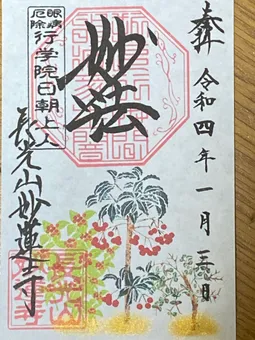 奉拝 令和四年一月三日
妙法
眼病
厄除
行学院日朝上人
長光山妙蓮寺
長光山
妙蓮寺